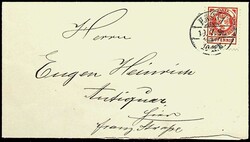 Herrn
Eugen Heinrich
Antiquar
hier
franz. Straße